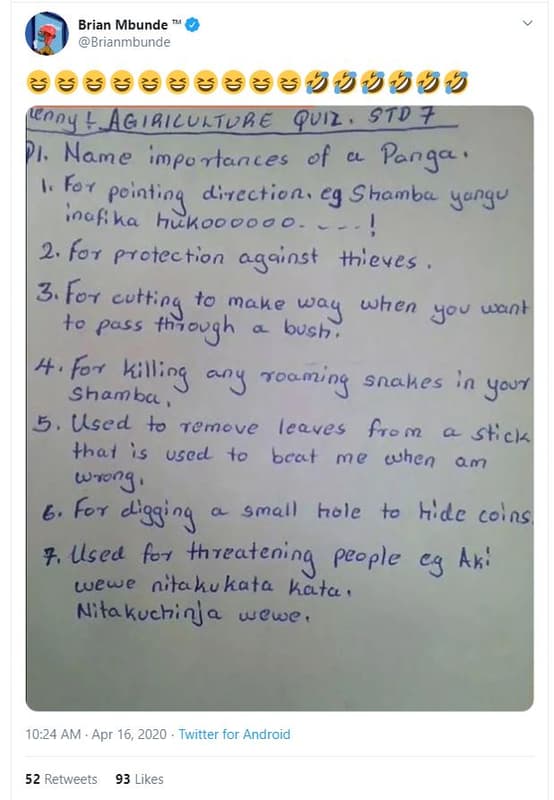 Brian Mbunde ™
@Brianmbunde
😆😆😆😆😆😆😆😆😆😆🤣🤣🤣🤣🤣🤣
AGIRICULTURE QUIZ. STD 7
1. Name importances of a Panga.
1. For pointing direction. eg Shamba yangu
inafika hukoooooo. - - - - !
2. For protection against thieves.
3. For cutting to make way when you want
to pass through a bush.
4. For killing any roaming snakes in your
Shamba.
5. Used to remove leaves from a stick
that is used to beat me when am
wrong.
6. For digging a small hole to hide coins.
7. Used for threatening people eg Aki
wewe nitakukata kata.
Nitakuchinja wewe.
10:24 AM · Apr 16, 2020 · Twitter for Android
52 Retweets 93 Likes